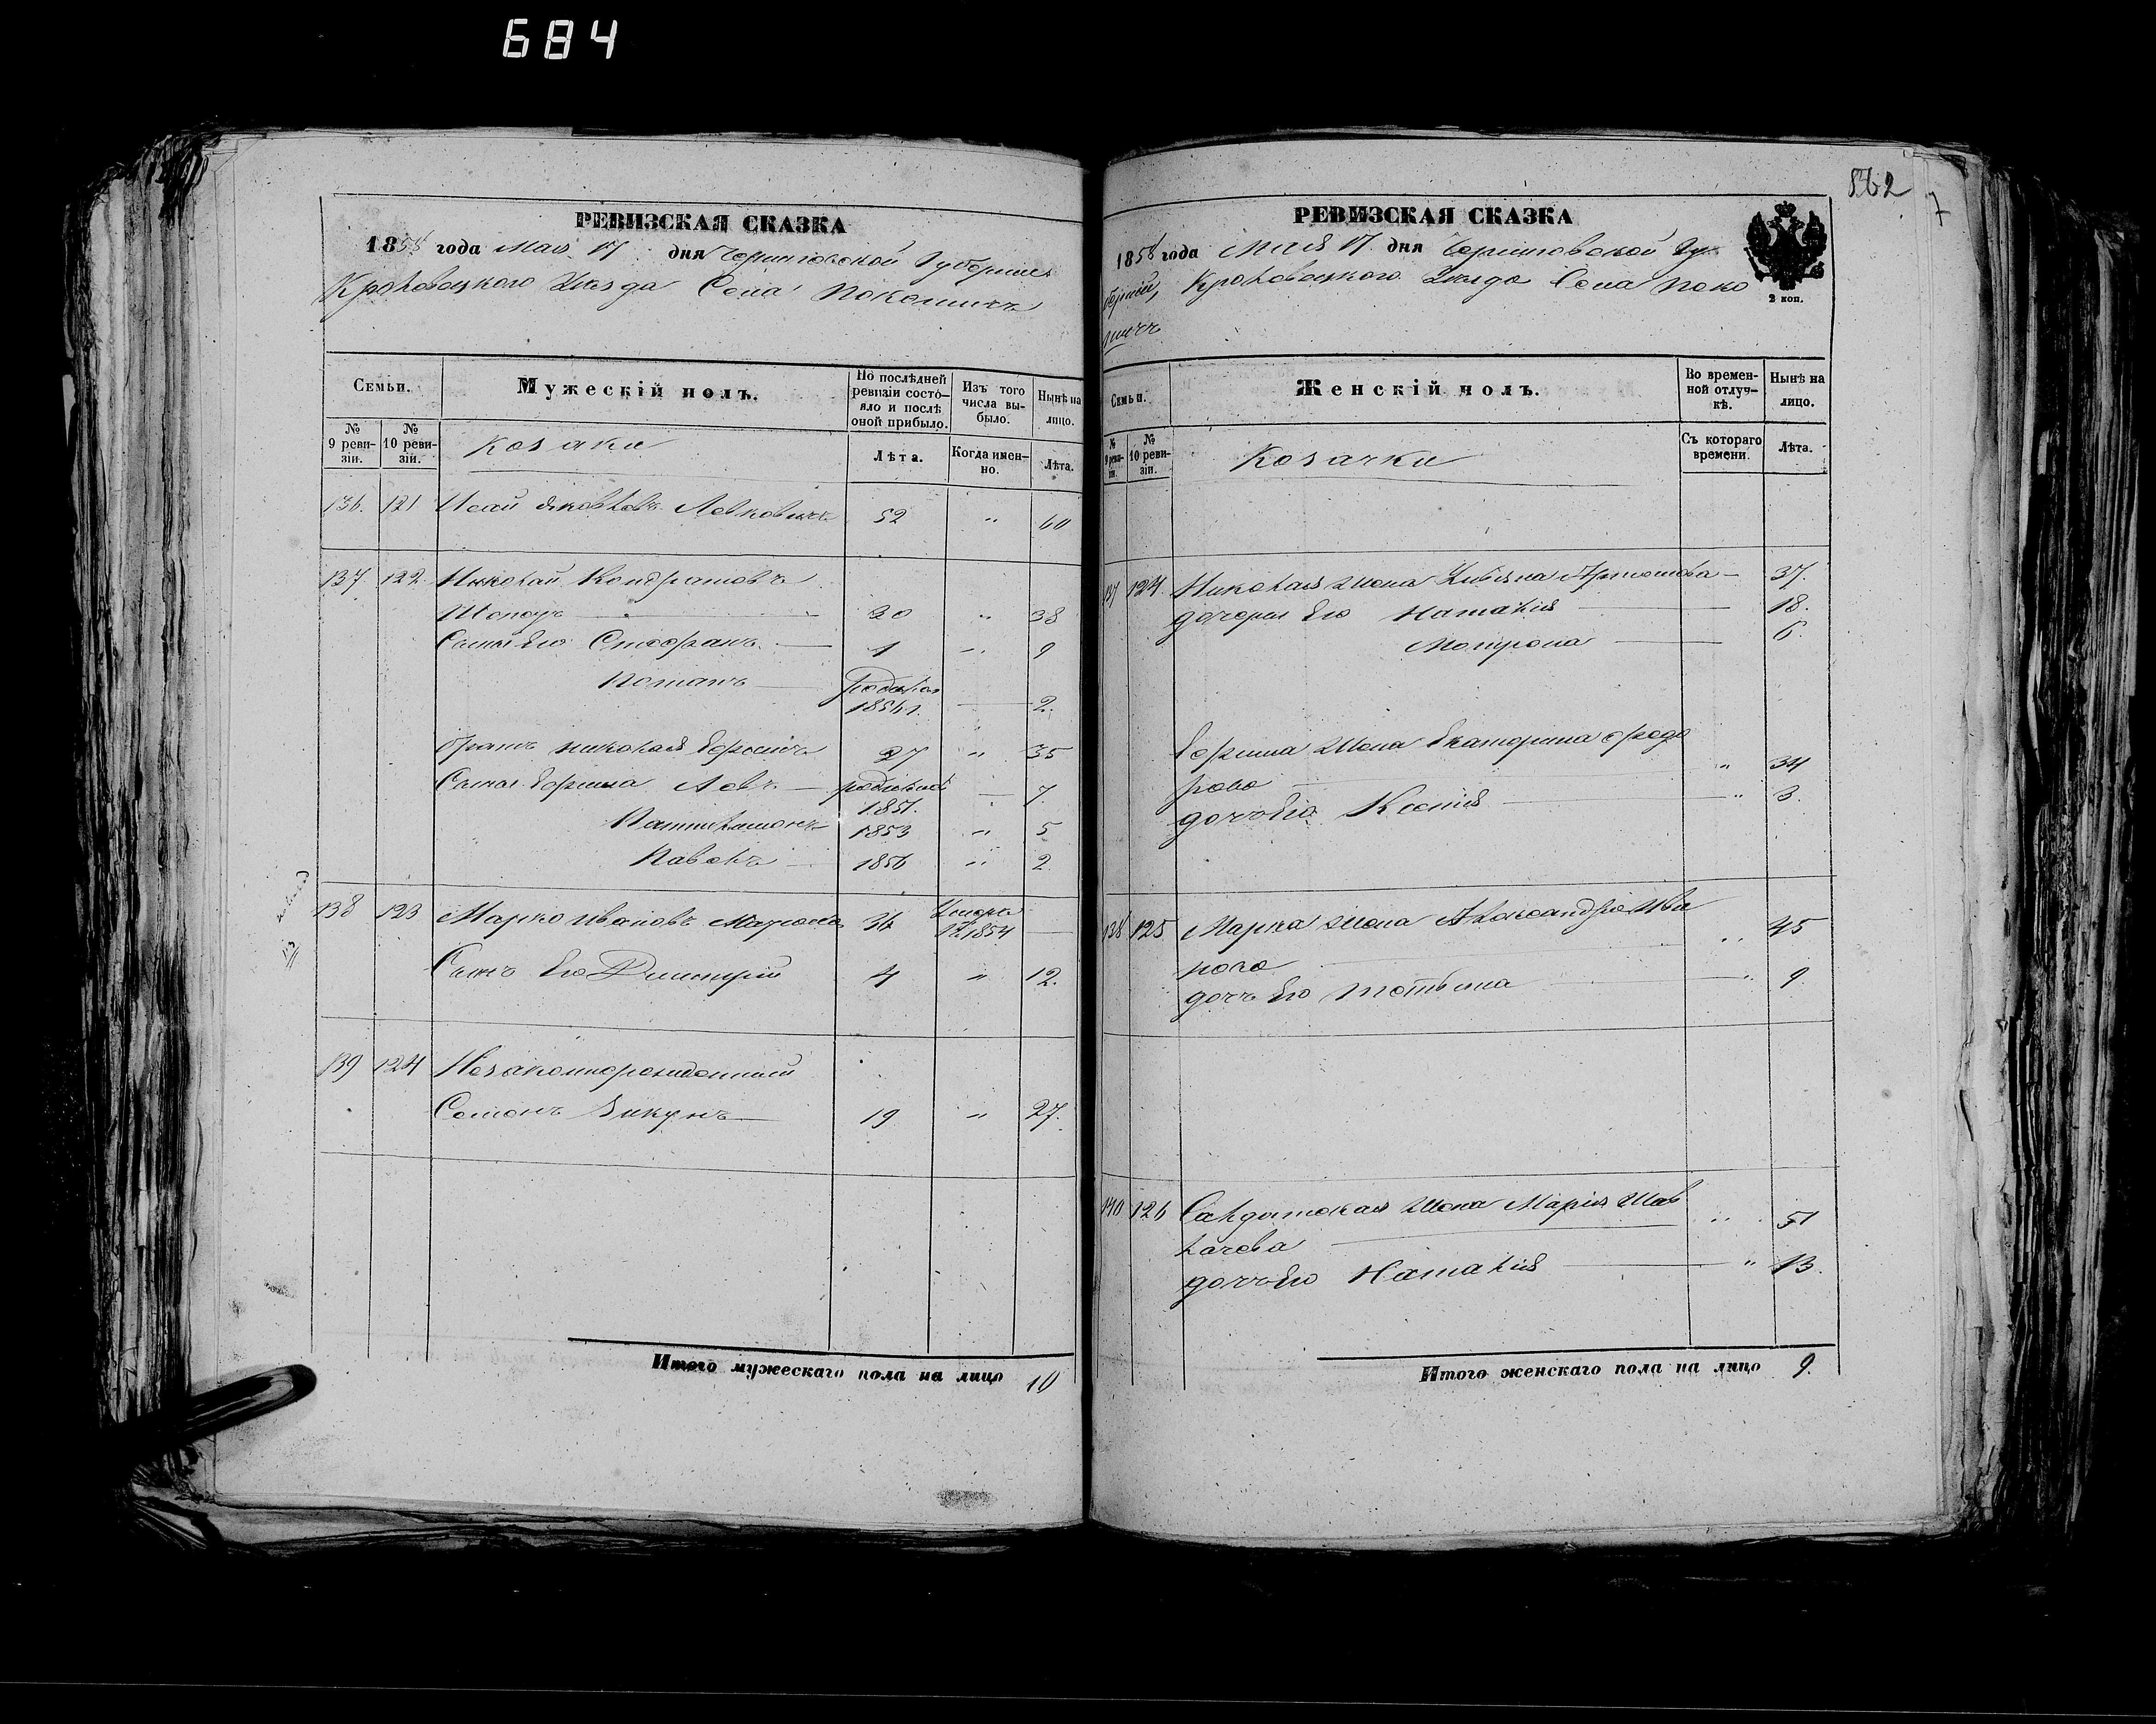 684
РЕВИЗСКАЯ СКАЗКА
1858 года Мая 17 дня Черниговской Губерніи
Кролевецкого Уезда Села
Семьи.
Мужескій полъ.
По послѣдней ревизіи состояло и послѣ оной прибыло.
Изъ того числа выбыло.
Нынѣ на лицо.
№ 9 ревизіи.
№ 10 ревизіи.
Козаки
Лѣта.
Когда именно.
Лѣта.
136. 121 Исай Яковлевъ Левковичъ 52 " 60
137. 122. Николай Кондратовъ
30 " 38
Сыны Его Стефанъ 1 " 9
родился
1856 г. 2.
братъ Николая Ефимъ 27 " 35
Сыны Ефима Левъ родился 7.
1851.
Пантилимонъ 1853 " 5
Павелъ 1856 " 2
138 123 Марко Ивановъ 36 Умеръ
въ 1854
Сынъ Его Дмитрій 4 " 12.
139 124 Незаконнорожденный
Семенъ Зикунъ 19 " 27.
Итого мужескаго пола на лицо 10
562
7
РЕВИЗСКАЯ СКАЗКА
1858 года Мая 17 дня Черниговской Гу
берніи, Кролевецкого Уезда Села
2 коп.
Семьи.
Женскій полъ.
Во временной отлучкѣ.
Нынѣ на лицо.
№ 9 ревизіи.
№ 10 ревизіи.
Козачки
Съ котораго времени.
Лѣта.
137 124 Николая жена Ульяна Артемова 37.
дочери Его Наталія 18.
Мотрона 6.
Ефима жена Екатерина Федо
рова " 34
дочь Его Ксенія " 3.
138 125 Марка жена Александра Ива
нова " 45
дочь Его Тетьяна " 9
140 126 Салдатская жена Марія Шав
" 51
дочь Ею Наталія " 13.
Итого женскаго пола на лицо 9.